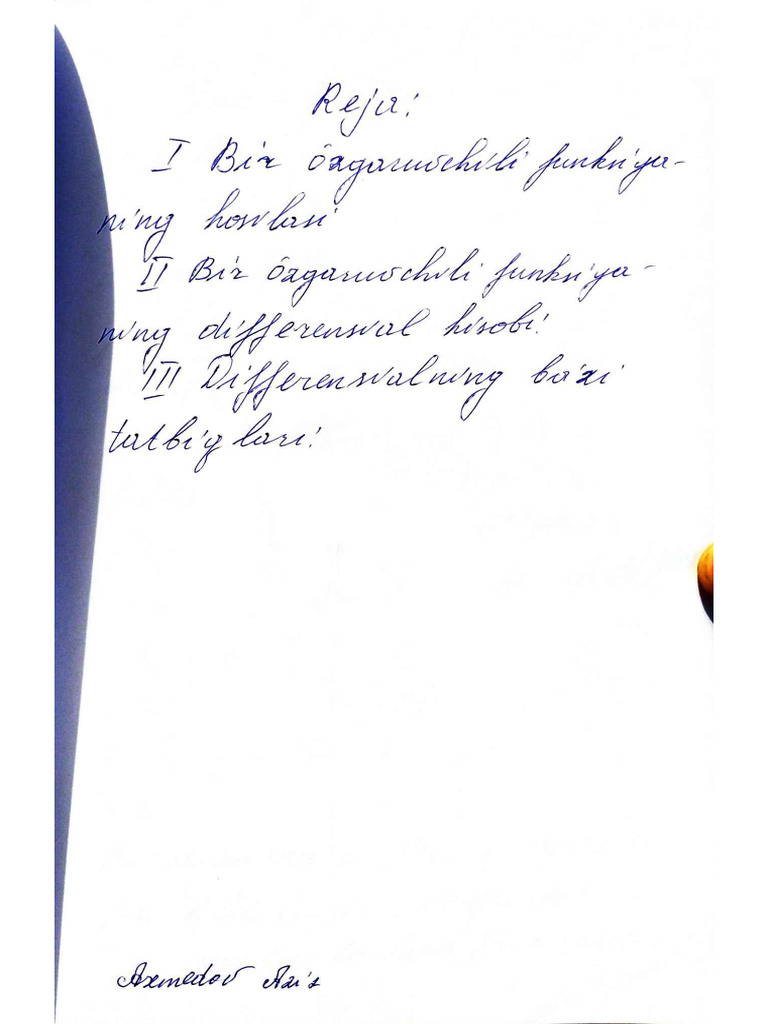 Reja:
I Bir o'zgaruvchili funksiya-
ning hosilasi
II Bir o'zgaruvchili funksiya-
ning differensial hisobi.
III Differensialning ba'zi
tatbiqlari.
Axmedov Aziz